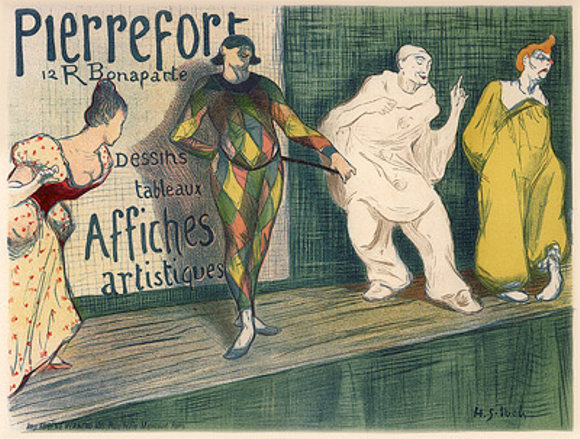 Pierrefort
12 R Bonaparte
Dessins
tableaux
Affiches
artistiques
H. G. Ibels